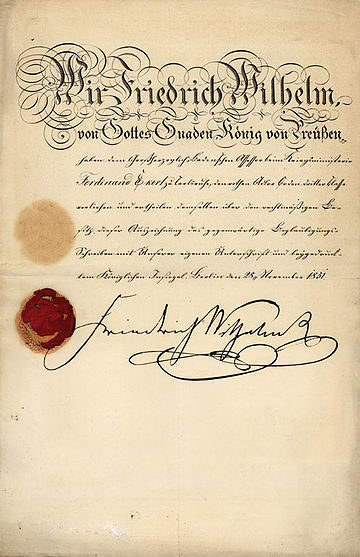 Wir Friedrich Wilhelm,
von Gottes Gnaden König von Preußen
haben dem Großherzoglich Badenschen Assessor beim Kriegsministerio
Ferdinand Eckert zu Carlsruhe, den rothen Adler Orden dritter Klasse
verliehen und ertheilen demselben über den rechtmäßigen Be-
sitz dieser Auszeichnung das gegenwärtige Beglaubigungs-
Schreiben mit Unserer eigenen Unterschrift und beigedruck-
tem Königlichen Insiegel. Berlin den November 1851
Friedrich Wilhelm